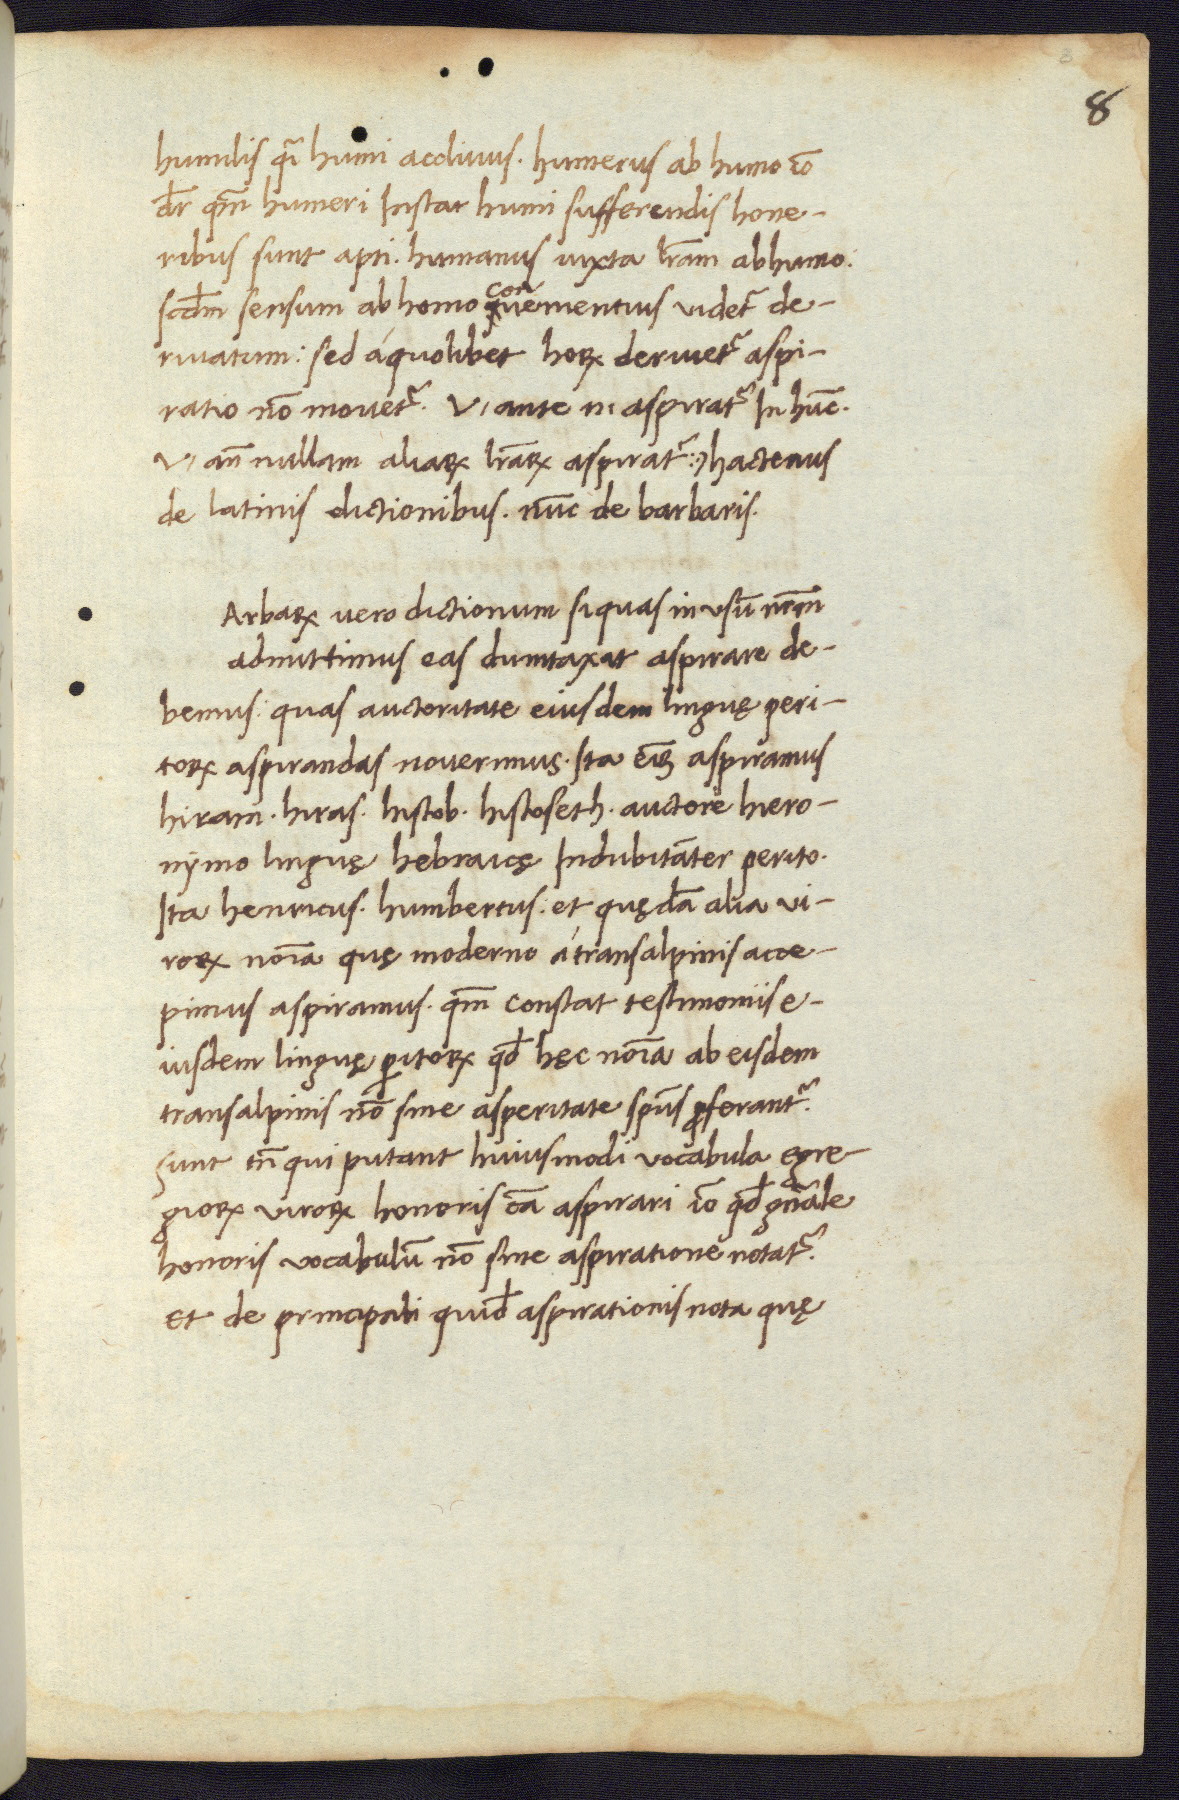 8
humilis qa humi acclivus. humerus ab humo io
dr qm humeri Instar humi sufferendis hone-
ribus sunt apti. humanus iuxta lram ab humo:
scdm sensum ab homo convenientius videt de-
rivatum: sed á quolibet horꝝ derivet aspi-
ratio nō movet. V, ante n, aspirat In hūc.
V, an nullam aliarꝝ lrarꝝ aspirat: hactenus
de latinis dictionibus. nūc de barbaris.
Arbarꝝ vero dictionum si quas in usū nrm
admittimus eas dumtaxat aspirare de-
bemus: quas auctoritate eiusdem linguę peri-
torꝝ aspirandas noverimus. Ita aspiramus
hiram. hiras. histob. histoseth. auctore hiero-
nÿmo linguę hebraicę Indubitāter perito.
Ita henricus. humbertus: et quędā alia vi-
rorꝝ noīa quę moderno á transalpinis acce-
pimus aspiramus. qm constat testimoniis e-
iusdem linguę ꝑitorꝝ qd hęc noīa ab eisdem
transalpinis nō sine asperitate spūs ꝓferant.
Sunt tn̄ qui putant huiusmodi vocabula egre-
giorꝝ virorꝝ honoris cā aspirari io qd gnāle
honoris vocabulū nō sine aspiratione notat.
Et de principali quid aspirationis nota quę